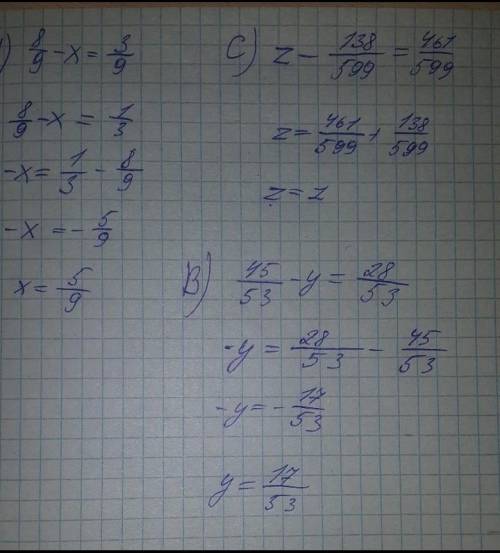 ) 8/9 - x = 3/9
8/9 - x = 1/3
-x = 1/3 - 8/9
-x = - 5/9
x = 5/9
C) z - 138/599 = 461/599
z = 461/599 + 138/599
z = 1
B) 45/53 - y = 28/53
-y = 28/53 - 45/53
-y = - 17/53
y = 17/53